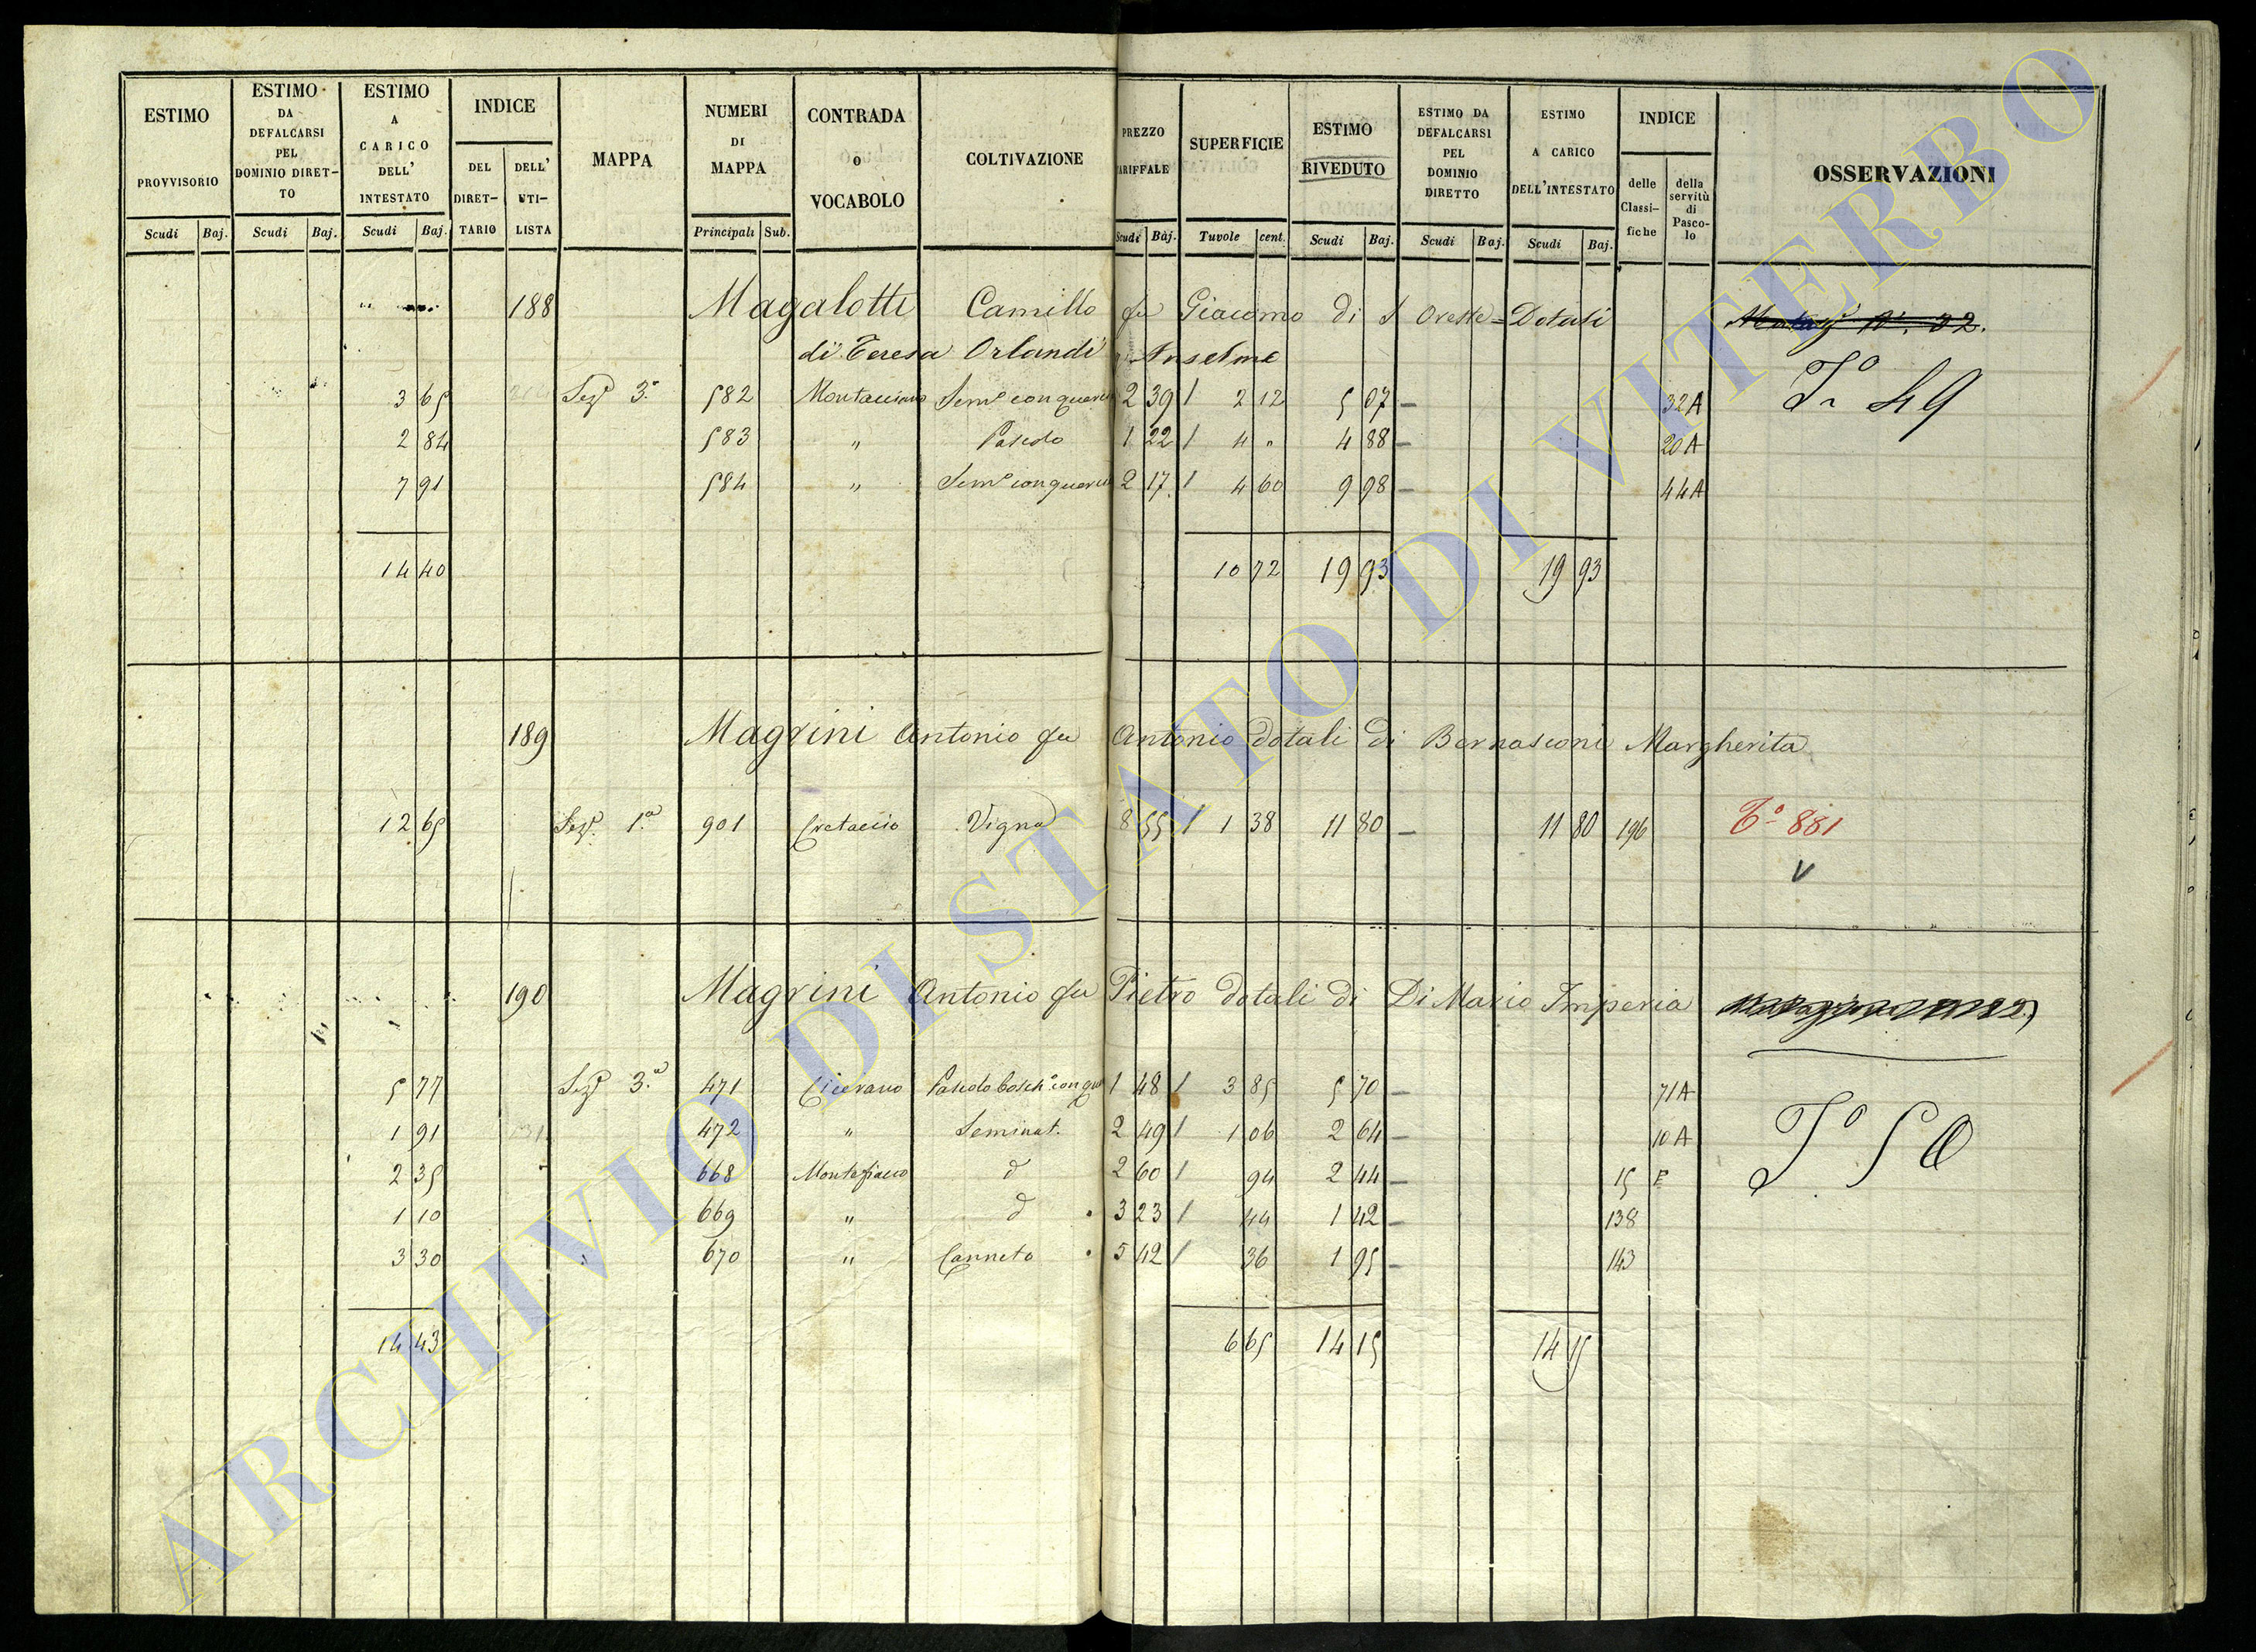 ESTIMO PROVVISORIO Scudi Baj.
ESTIMO DA DEFALCARSI PEL DOMINIO DIRETTO Scudi Baj.
ESTIMO A CARICO DELL' INTESTATO Scudi Baj.
INDICE DEL DIRET-TARIO DELL' UTI-LISTA
MAPPA
NUMERI DI MAPPA Principali Sub.
CONTRADA O VOCABOLO
COLTIVAZIONE
PREZZO TARIFFALE Scudi Baj.
SUPERFICIE Tavole cent.
ESTIMO RIVEDUTO Scudi Baj.
ESTIMO DA DEFALCARSI PEL DOMINIO DIRETTO Scudi Baj.
ESTIMO A CARICO DELL'INTESTATO Scudi Baj.
INDICE delle Classi-fiche della servitù di Pasco-lo
OSSERVAZIONI
188 Magalotti Camillo fu Giacomo di S Oreste = Dotali
di Teresa Orlandi Anselmo
3 65 Sezᵉ 3.ª 582 Montacciano Semᵒ con querce 2 39 / 2 12 5 07 — 32 A Tᵒ 49
2 84 583 " Pascolo 1 22 / 4 " 4 88 — 20 A
7 91 584 " Semᵒ con querce 2 17 / 4 60 9 98 — 44 A
14 40 10 72 19 93 19 93
189 Magrini Antonio fu Antonio dotali di Bernasconi Margherita
12 65 Sezᵉ 1.ª 901 Cretaccio Vigna 8 55 / 1 38 11 80 — 11 80 196 Tᵒ 881
V
190 Magrini Antonio fu Pietro dotali di Di Mario Imperia
5 77 Sezᵉ 3.ª 471 Ciievano Pascolo boschᵒ con que 1 48 / 3 85 5 70 — 71 A
1 91 472 " Seminat. 2 49 / 1 06 2 64 — 10 A Tᵒ 50
2 35 668 Montefiacco d 2 60 / 94 2 44 — 15 E
1 10 669 " d 3 23 / 44 1 42 — 138
3 30 670 " Canneto 5 42 / 36 1 95 — 143
14 43 6 65 14 15 14 15
ARCHIVIO DI STATO DI VITERBO